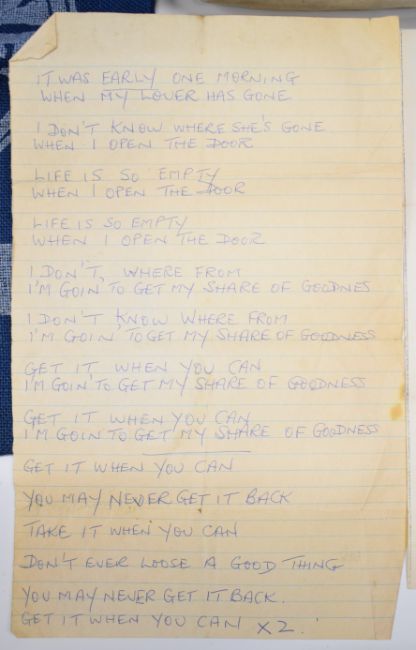 IT WAS EARLY ONE MORNING
WHEN MY LOVER HAS GONE
I DON'T KNOW WHERE SHE'S GONE
WHEN I OPEN THE DOOR
LIFE IS SO EMPTY
WHEN I OPEN THE DOOR
LIFE IS SO EMPTY
WHEN I OPEN THE DOOR
I DON'T, WHERE FROM
I'M GOIN' TO GET MY SHARE OF GOODNES
I DON'T KNOW WHERE FROM
I'M GOIN' TO GET MY SHARE OF GOODNESS
GET IT WHEN YOU CAN
I'M GOIN' TO GET MY SHARE OF GOODNESS
GET IT WHEN YOU CAN
I'M GOIN' TO GET MY SHARE OF GOODNESS
GET IT WHEN YOU CAN
YOU MAY NEVER GET IT BACK
TAKE IT WHEN YOU CAN
DON'T EVER LOOSE A GOOD THING
YOU MAY NEVER GET IT BACK.
GET IT WHEN YOU CAN X2.